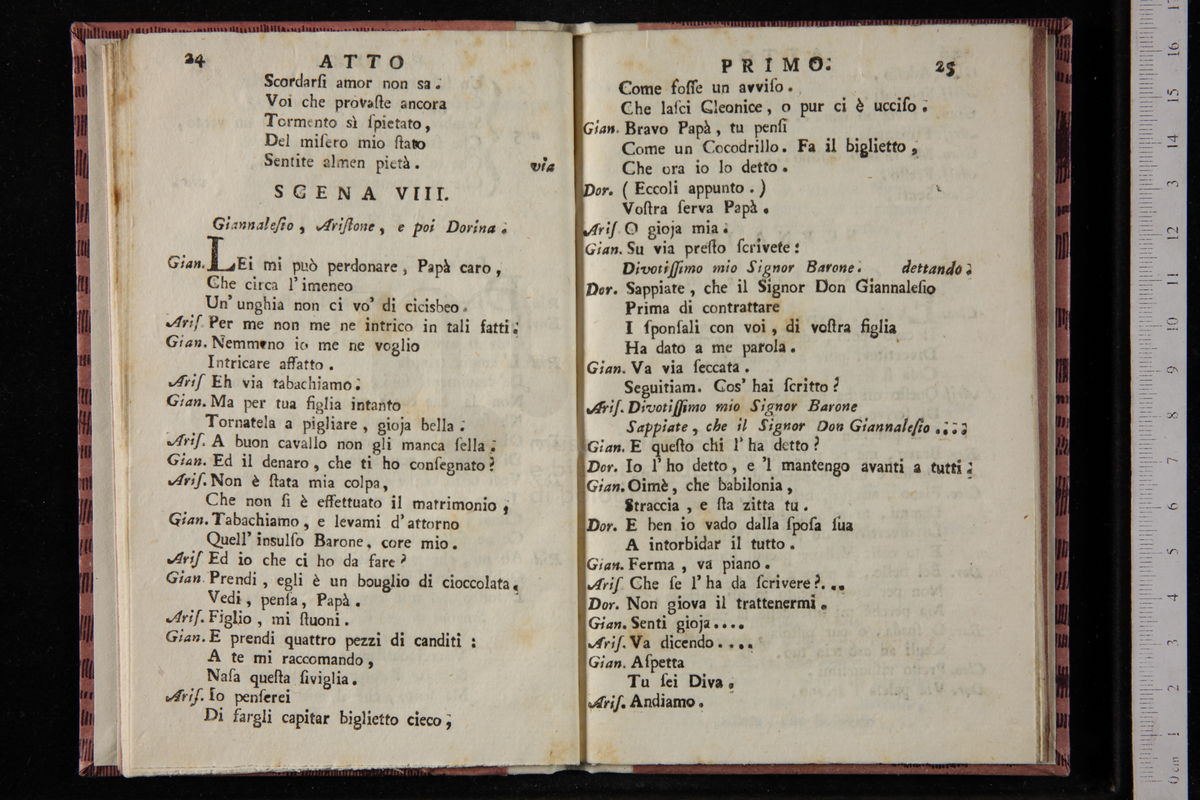 24 ATTO
Scordarſi amor non sa.
Voi che provaſte ancora
Tormento sì ſpietato,
Del miſero mio ſtato
Sentite almen pietà. via
SCENA VIII.
Giannaleſio, Ariſtone, e poi Dorina.
Gian. LEi mi può perdonare, Papà caro,
Che circa l'imeneo
Un' unghia non ci vo' di cicisbeo.
Ariſ. Per me non me ne intrico in tali fatti.
Gian. Nemmeno io me ne voglio
Intricare affatto.
Ariſ Eh via tabachiamo.
Gian. Ma per tua figlia intanto
Tornatela a pigliare, gioja bella.
Ariſ. A buon cavallo non gli manca ſella.
Gian. Ed il denaro, che ti ho conſegnato?
Ariſ. Non è ſtata mia colpa,
Che non ſi è effettuato il matrimonio,
Gian. Tabachiamo, e levami d'attorno
Quell' inſulſo Barone, core mio.
Ariſ Ed io che ci ho da fare?
Gian Prendi, egli è un bouglio di cioccolata,
Vedi, penſa, Papà.
Ariſ. Figlio, mi ſtuoni.
Gian. E prendi quattro pezzi di canditi:
A te mi raccomando,
Naſa queſta ſiviglia.
Ariſ. Io penſerei
Di fargli capitar biglietto cieco,
PRIMO. 25
Come foſſe un avviſo.
Che laſci Cleonice, o pur ci è ucciſo.
Gian. Bravo Papà, tu penſi
Come un Cocodrillo. Fa il biglietto,
Che ora io lo detto.
Dor. (Eccoli appunto.)
Voſtra ſerva Papà.
Ariſ O gioja mia.
Gian. Su via preſto ſcrivete:
Divotiſſimo mio Signor Barone. dettando.
Dor. Sappiate, che il Signor Don Giannaleſio
Prima di contrattare
I ſponſali con voi, di voſtra figlia
Ha dato a me parola.
Gian. Va via ſeccata.
Seguitiam. Cos' hai ſcritto?
Ariſ. Divotiſſimo mio Signor Barone
Sappiate, che il Signor Don Giannaleſio....
Gian. E queſto chi l' ha detto?
Dor. Io l' ho detto, e 'l mantengo avanti a tutti.
Gian. Oimè, che babilonia,
Straccia, e ſta zitta tu.
Dor. E ben io vado dalla ſpoſa ſua
A intorbidar il tutto.
Gian. Ferma, va piano.
Ariſ Che ſe l' ha da ſcrivere?...
Dor. Non giova il trattenermi.
Gian. Senti gioja....
Ariſ. Va dicendo....
Gian. Aſpetta
Tu ſei Diva.
Ariſ. Andiamo.